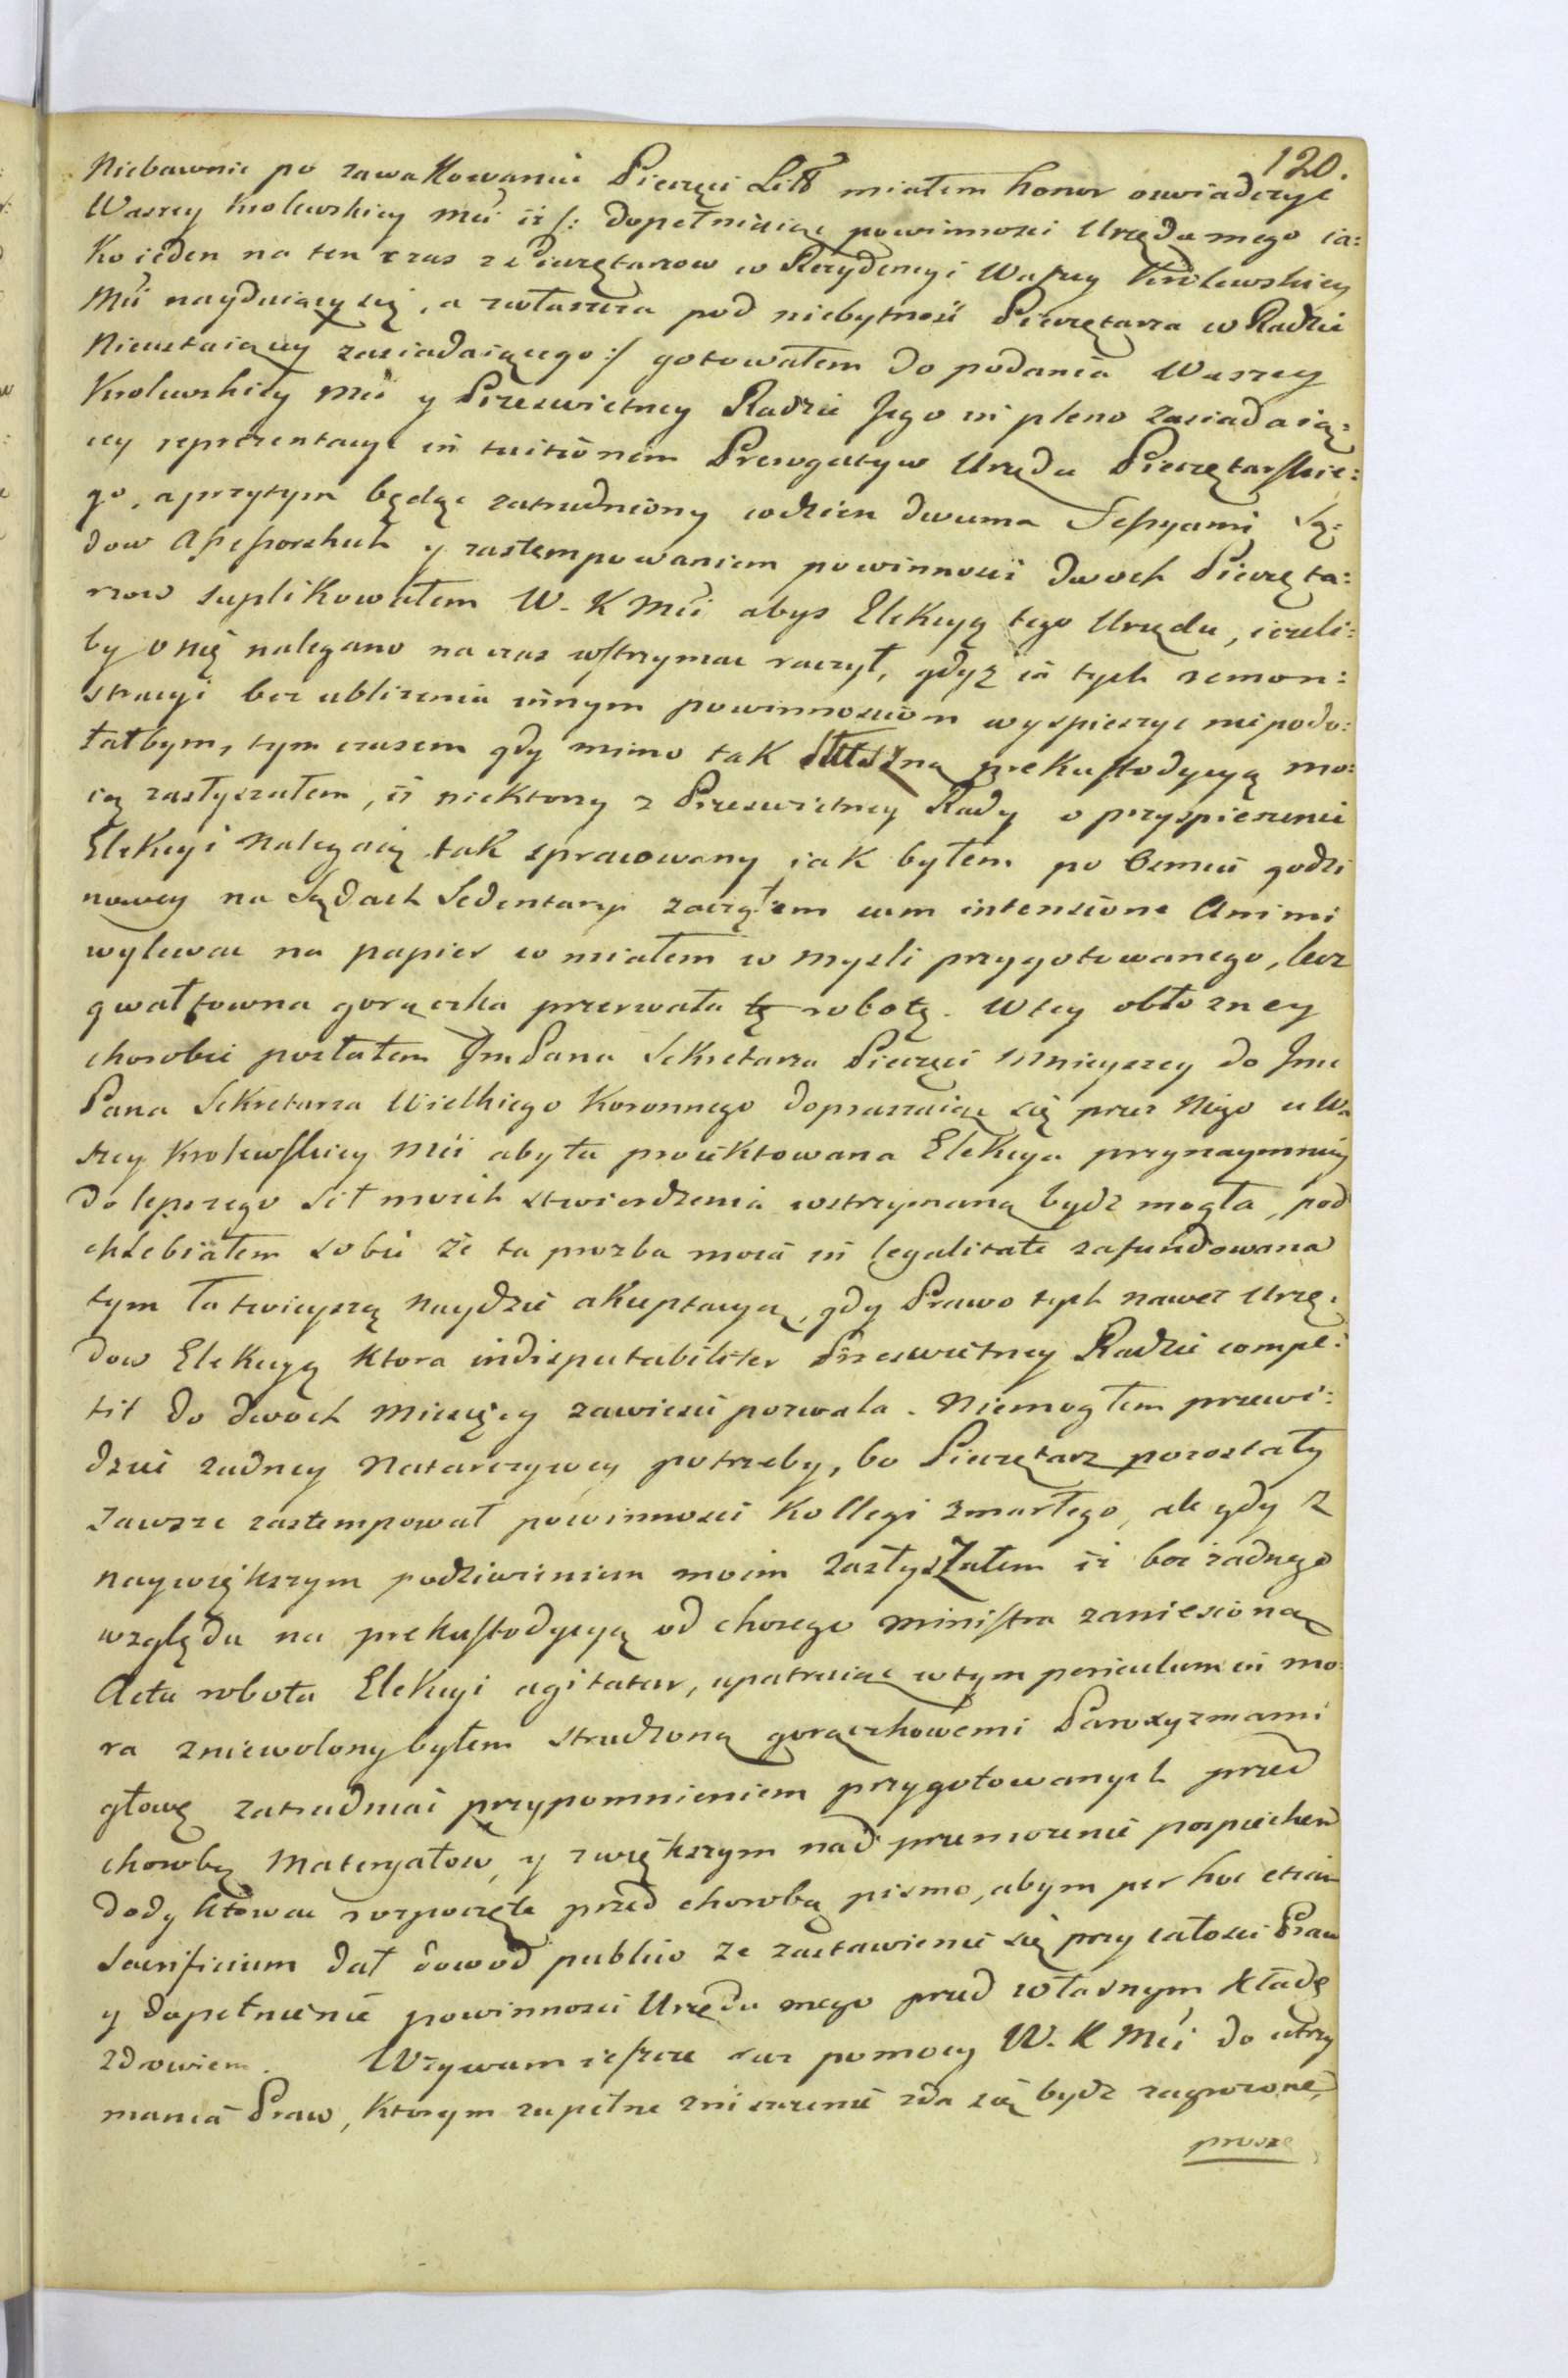 120.
Niebawnie po zawakowaniu Pieczęci Litt miałem honor oswiadczyć
Waszey Krolewskiey Mci iż /: dopełniaiąc powinnosci Urzędu mego ia:
ko ieden na ten czas z Pieczętarzow w Rezydencyi Waszey Krolewskiey
Mci nayduiący się, a zwłaszcza pod niebytność Pieczętarza w Radzie
Nieustaiącey zasiadaiącego :/ gotowałem do podania Waszey
Krolewskiey Mci y Przeswietney Radzie Jego in pleno zasiadaią:
cey reprezentacye in tuitionem Prerogatyw Urzędu Pieczętarskie:
go, a przytym będąc zatrudniony codzien dwuma Sessyami Są:
dow Assessorskich y zastempowaniem powinnosci dwoch Pieczęta:
rzow suplikowałem W. K Mci abys Elekcyą tego Urzędu, iezeli:
by o nię nalegano na czas wstrzymac raczył, gdyż ia tych remon:
stracyi bez ublizenia innym powinnosciom wyspieszyc niepodo:
łałbym, tym czasem gdy mimo tak słuszną prekustodycyą mo:
ią zasłyszałem, iż niektorzy z Przeswietney Rady o przyspieszenie
Elekcyi nalegaią tak spracowany iak byłem po osmiu godzi
nowey na Sądach Sedentaryi zacząłem cum intensione Animi
wylewac na papier co miałem w mysli przygotowanego, lecz
gwałtowna gorączka przerwała tę robotę. W tey obłozney
chorobie posłałem Jm Pana Sekretarza Pieczęci Mnieyszey do Jmc
Pana Sekretarza Wielkiego Koronnego dopraszaiąc się przez Niego u Wa
szey Krolewskiey Mci aby ta proiektowana Elekcya przynaymniey
do lepszego sił moich stwierdzenia wstrzymaną bydz mogła, pod
chlebiałem sobie że ta prozba moia in legalitate zafundowana
tym łatwieyszą naydzie akceptacyą, gdy Prawo tych nawet Urzę:
dow Elekcyą ktora indisputabiliter Przeswietney Radzie compe:
tit do dwoch Miesięcy zawiesić pozwala. Niemogłem przewi:
dzieć zadney natarczywey potrzeby, bo Pieczętarz pozostały
zawsze zastempował powinnosci Kollegi zmarłego, ale gdy z
naywiększym podziwieniem moim zasłyszałem iż bez zadnego
względu na prekustodycyą od chorego Ministra zaniesioną
Acta robota Elekcyi agitatur, upatruiąc w tym periculum in mo:
ra zniewolony byłem strudzoną gorączkowemi Paroxyzmami
głowę zatrudniać przypomnieniem przygotowanych przed
chorobą Materyałow, y z większym nad przemożenie pospiechem
dodyktowac rozpoczęte przed chorobą pismo, abym per hoc etiam
Sacrificium dał dowod publico ze zastawienie się przy całosci Praw
y dopełnienie powinnosci Urzędu mego przed własnym kładę
zdrowiem. Wzywam ieszcze raz pomocy W. K Mci do utrzy
mania Praw, ktorym zupełne zniszczenie zda się bydz zagrozone,
prosze